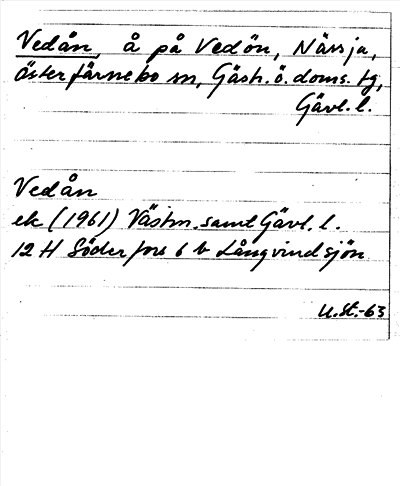 Vedån, å på Vedön, Närsja,
Österfärnebo sn, Gästr. ö. doms. tg,
Gävl. l.
Vedån
ek (1961) Västm. samt Gävl. l.
12 H Söderfors 6 b Långvindsjön
U.St.-63